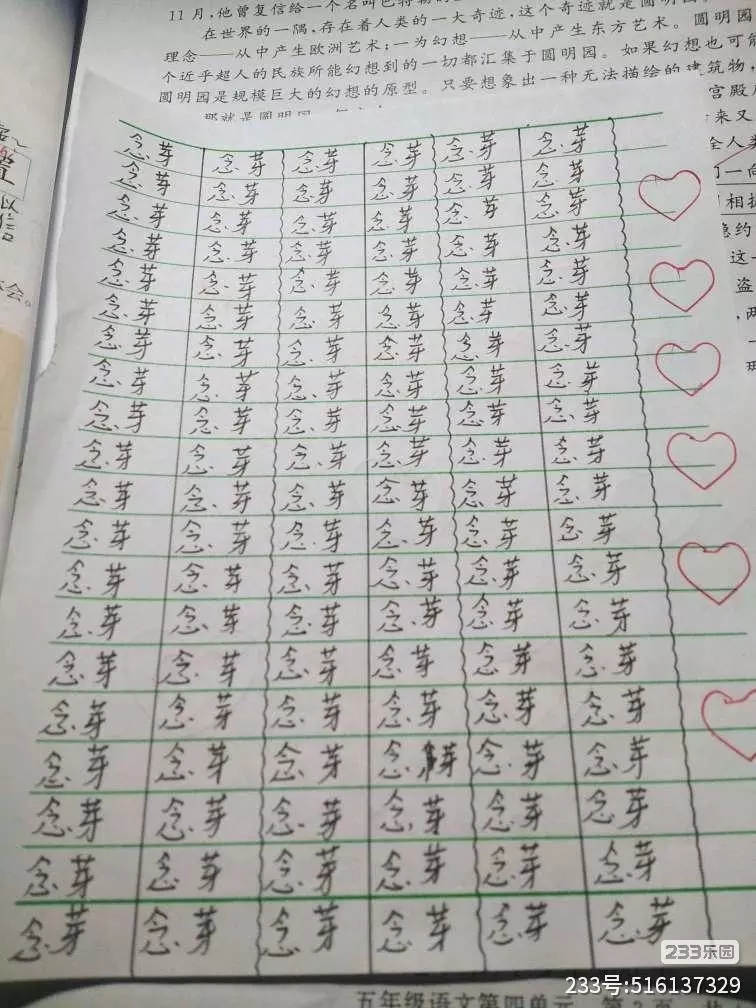 11月,他曾复信给一个名叫巴特勒的
在世界的一隅,存在着人类的一大奇迹,这个奇迹就是圆明园
理念——从中产生欧洲艺术;一为幻想——从中产生东方艺术。圆明园
个近乎超人的民族所能幻想到的一切都汇集于圆明园。如果幻想也可能
圆明园是规模巨大的幻想的原型。只要想象出一种无法描绘的建筑物,
那就是圆明园
宫殿
来又
全人类
一向
相提
隐约
这一
盗
两
会。
念芽 念芽 念芽 念芽 念芽 念芽
念芽 念芽 念芽 念芽 念芽 念芽
念芽 念芽 念芽 念芽 念芽 念芽
念芽 念芽 念芽 念芽 念芽 念芽
念芽 念芽 念芽 念芽 念芽 念芽
念芽 念芽 念芽 念芽 念芽 念芽
念芽 念芽 念芽 念芽 念芽 念芽
念芽 念芽 念芽 念芽 念芽 念芽
念芽 念芽 念芽 念芽 念芽 念芽
念芽 念芽 念芽 念芽 念芽 念芽
念芽 念芽 念芽 念芽 念芽 念芽
念芽 念芽 念芽 念芽 念芽 念芽
念芽 念芽 念芽 念芽 念芽 念芽
念芽 念芽 念芽 念芽 念芽 念芽
念芽 念芽 念芽 念芽 念芽 念芽
念芽 念芽 念芽 念芽 念芽 念芽
念芽 念芽 念芽 念芽 念芽 念芽
念芽 念芽 念芽 念芽 念芽 念芽
念芽 念芽 念芽 念芽 念芽 念芽
念芽 念芽 念芽 念芽 念芽 念芽
233乐园
233号:516137329
五年级语文第四单元 第2页